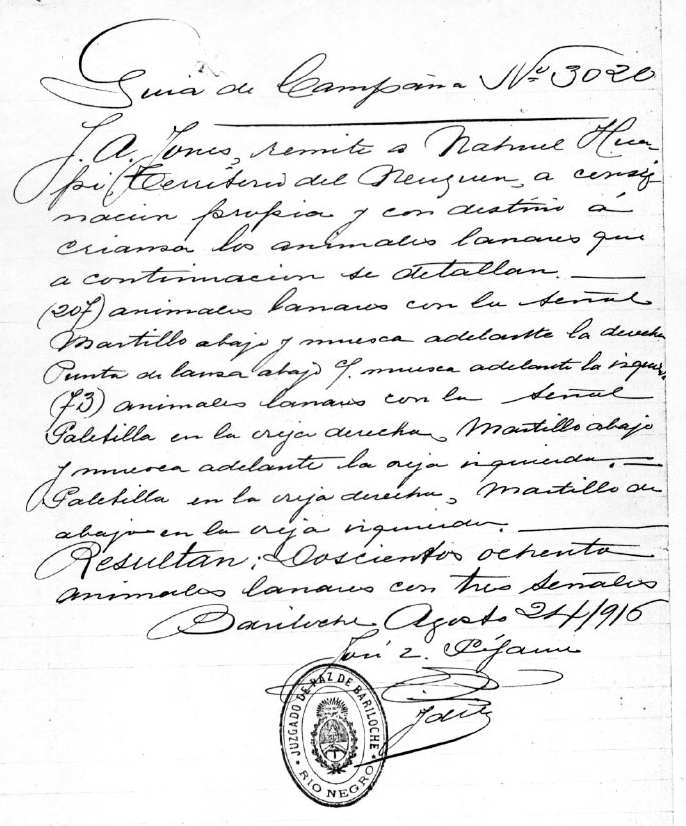 Guia de Campaña Nº 3020
J. A. Jones, remite a Nahuel Hua-
pi (Territorio del Neuquen, a consig
nacion propia y con destino á
criansa los animales lanares que
a continuacion se detallan.
(207) animales lanares con la señal
Martillo abajo y muesca adelante la derecha
Punta de lansa abajo y muesca adelante la isquier.
(73) animales lanares con la señal
Paletilla en la oreja derecha, Martillo abajo
y muesca adelante la oreja isquierda.
Paletilla en la oreja derecha, Martillo de
abajo en la oreja isquierda.
Resultan: Doscientos ochenta
animales lanares con tres señales
Bariloche Agosto 24/916
José
JUZGADO DE PAZ DE BARILOCHE
RIO NEGRO